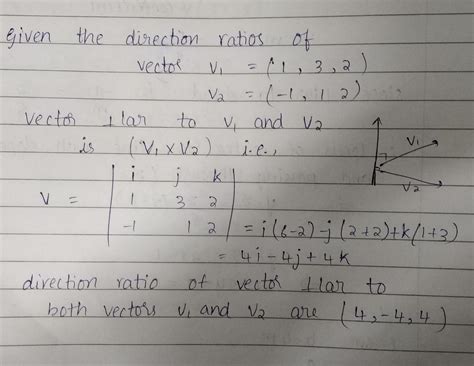 Given the direction ratios of
vector V₁ = (1, 3, 2)
V₂ = (-1, 1 2)
vector ⊥lar to V₁ and V₂
is (V₁ x V₂) i.e.,
V₁
V₂
i j k
V = 1 3 2
-1 1 2 = i(6-2)-j(2+2)+k(1+3)
= 4i-4j+4k
direction ratio of vector ⊥lar to
both vectors V₁ and V₂ are (4,-4,4)